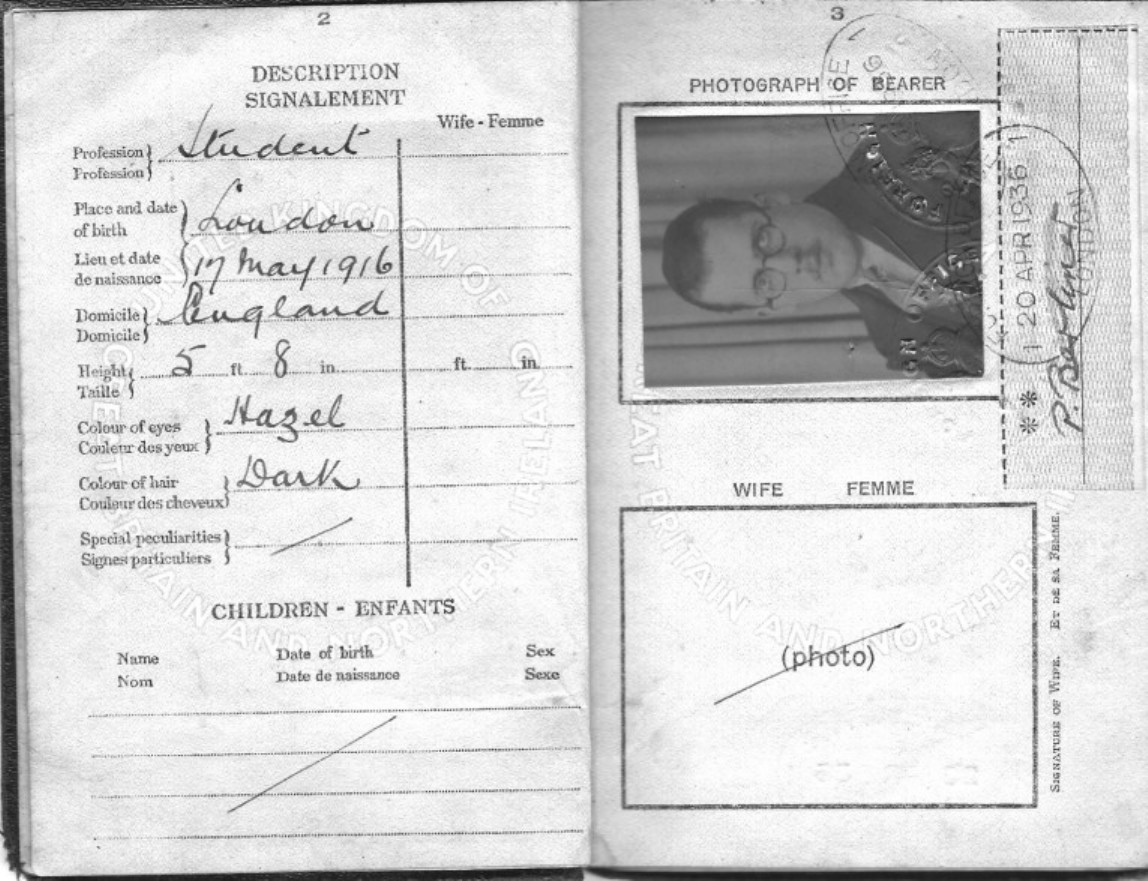 2
DESCRIPTION
SIGNALEMENT
Wife - Femme
Profession } Student
Profession }
Place and date of birth } London
Lieu et date de naissance } 17 May 1916
Domicile } England
Domicile }
Height } 5 ft. 8 in. ft. in.
Taille }
Colour of eyes } Hazel
Couleur des yeux }
Colour of hair } Dark
Couleur des cheveux }
Special peculiarities }
Signes particuliers }
CHILDREN - ENFANTS
Name Date of birth Sex
Nom Date de naissance Sexe
UNITED KINGDOM OF GREAT BRITAIN AND NORTHERN IRELAND
3
PHOTOGRAPH OF BEARER
FOREIGN OFFICE
1 20 APR 1936 1
LONDON
**
WIFE FEMME
(photo)
SIGNATURE OF WIFE. ET DE SA FEMME.
BRITAIN AND NORTHERN